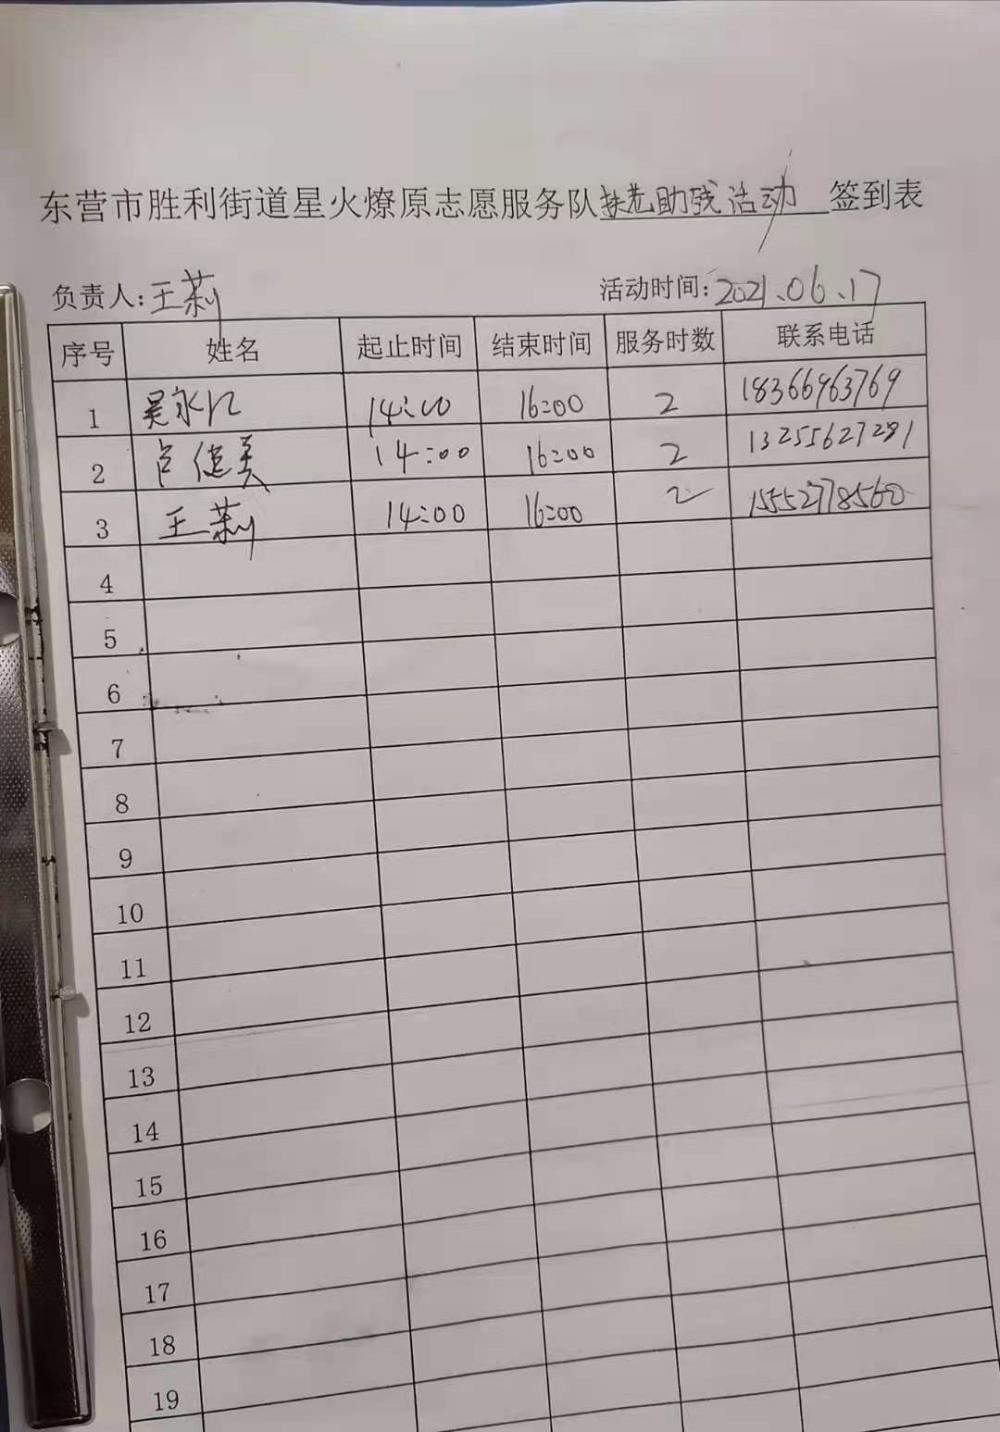 东营市胜利街道星火燎原志愿服务队扶老助残活动 签到表
负责人:王莉 活动时间:2021.06.17
序号 姓名 起止时间 结束时间 服务时数 联系电话
1 吴永 14:00 16:00 2 18366963769
2 卢健美 14:00 16:00 2 13255627281
3 王莉 14:00 16:00 2 15552778560
4
5
6
7
8
9
10
11
12
13
14
15
16
17
18
19